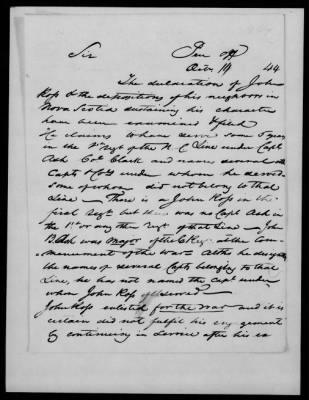 Sir
Pen Off
Octo 14 44
The declaration of John
Ross & the depositions of his neighbors in
Nova Scotia sustaining his character
have been examined & filed
He claims to have serve some 5 years
in the 1st Regt of the N. C. Line under Capt
Ash Col. Clark and names several
Capts & Cols under whom he served
some of whom did not belong to that
Line – There is a John Ross in the
first Regt but there was no Capt Ash in
the 1st or any other Regt of that Line – John
B. Ash was Major of the 6 Regt at the Com-
mencement of the war – Altho he designates
the names of several Capts belonging to that
Line, he has not named the capt under
whom John Ross served –
John Ross enlisted for the war and it is
certain did not fulfil his engagement
by continuing in service after his ex